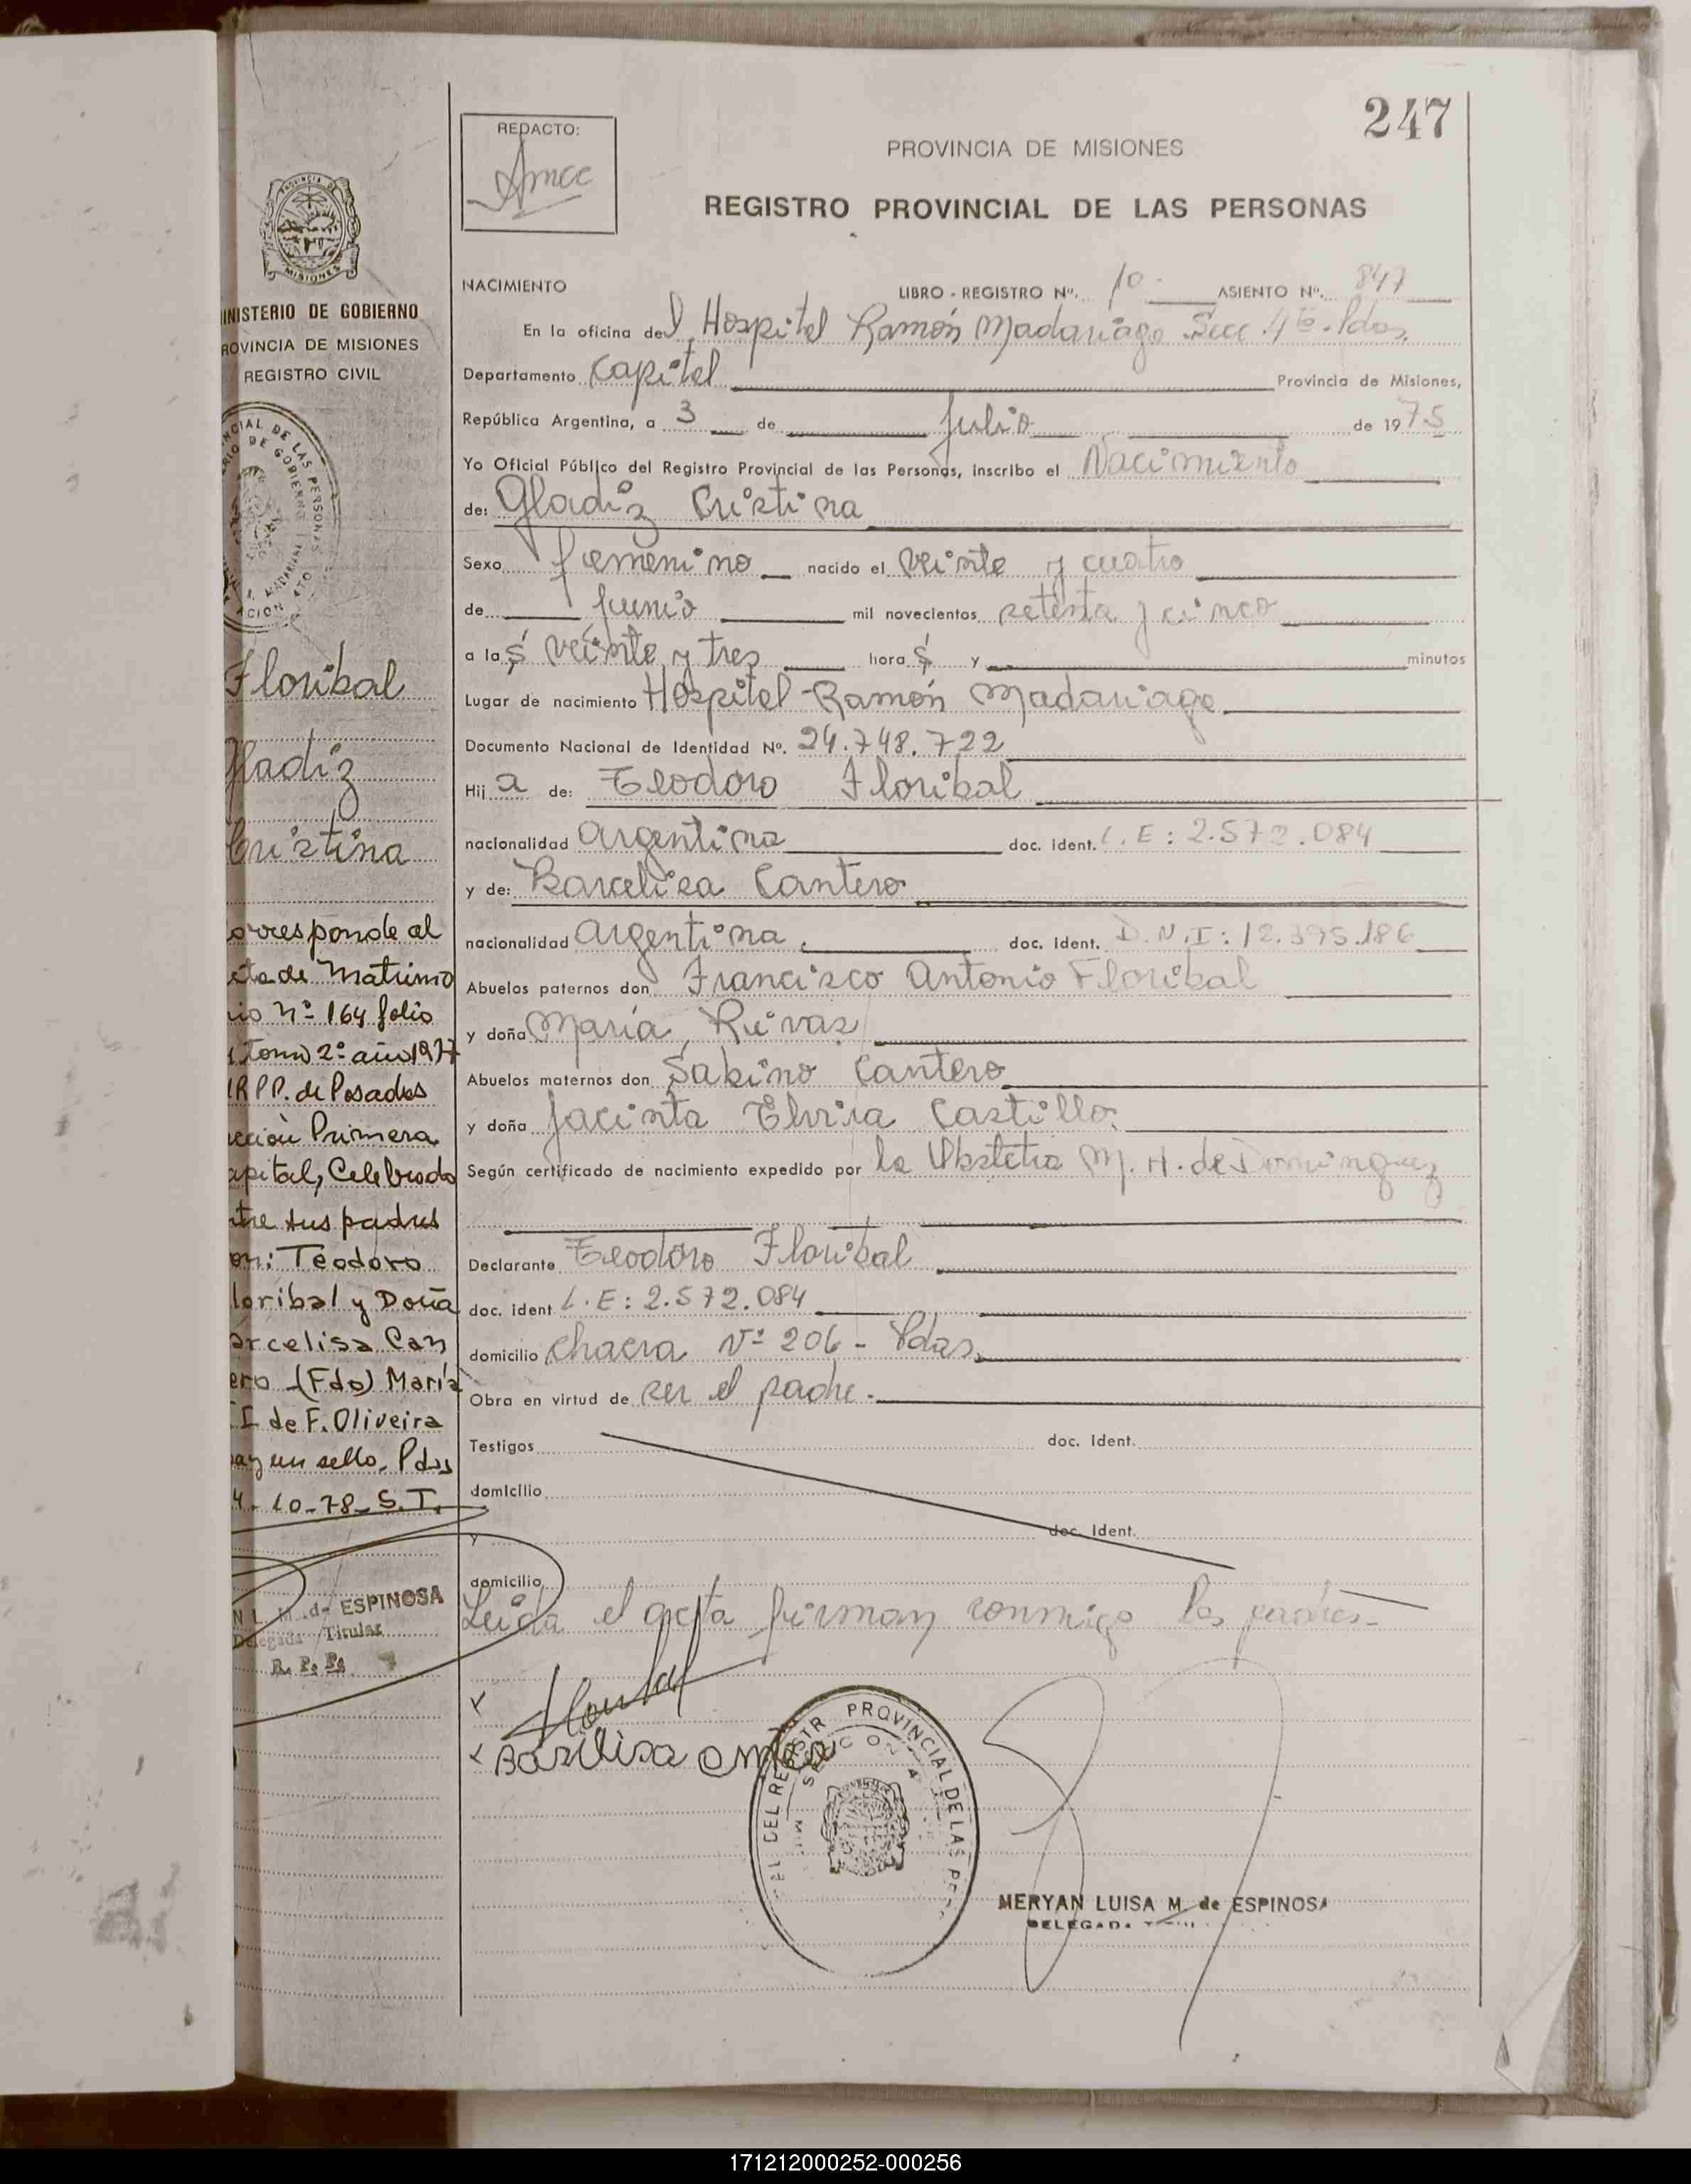 247
REDACTO:
PROVINCIA DE MISIONES
REGISTRO PROVINCIAL DE LAS PERSONAS
NACIMIENTO LIBRO - REGISTRO Nº. 10 - ASIENTO Nº. 847
En la oficina del Hospital Ramón Madariaga Secc 4ta - Pdas.
Departamento Capital Provincia de Misiones,
República Argentina, a 3 de Julio de 1975
Yo Oficial Público del Registro Provincial de las Personas, inscribo el Nacimiento
de: Gladiz Cristina
Sexo femenino nacido el veinte y cuatro
de Junio mil novecientos setenta y cinco
a las veinte y tres horas y minutos
Lugar de nacimiento Hospital Ramón Madariaga
Documento Nacional de Identidad Nº. 24.748.722
Hija de: Teodoro Floribal
nacionalidad Argentina doc. Ident. L.E: 2.572.084
y de: Barcelisa Cantero
nacionalidad Argentina. doc. Ident. D.N.I: 12.395.186
Abuelos paternos don Francisco Antonio Floribal
y doña María Rivas
Abuelos maternos don Sabino Cantero
y doña Jacinta Elvira Castillo.
Según certificado de nacimiento expedido por la Obstetra M. H. de Dominguez
Declarante Teodoro Floribal
doc. ident L.E: 2.572.084
domicilio Chacra Nº 206 - Pdas.
Obra en virtud de ser el padre.
Testigos doc. Ident.
domicilio
y doc. Ident.
domicilio
Leida el acta firman conmigo los padres-
Floribal
MERYAN LUISA M. de ESPINOSA
DELEGADA
MINISTERIO DE GOBIERNO
PROVINCIA DE MISIONES
REGISTRO CIVIL
Floribal
Gladiz
Cristina
orresponde al
cta de Matrimo
nio Nº 164 folio
Tomo 2º año 1977
RPP. de Posadas
ección Primera
apital, Celebrado
ntre sus padres
on: Teodoro
loribal y Doña
arcelisa Can
ero - (Fdo) María
I de F. Oliveira
hay un sello. Pdas
4-10-78 S.T.
de ESPINOSA
Delegada Titular
R. P. P.
171212000252-000256